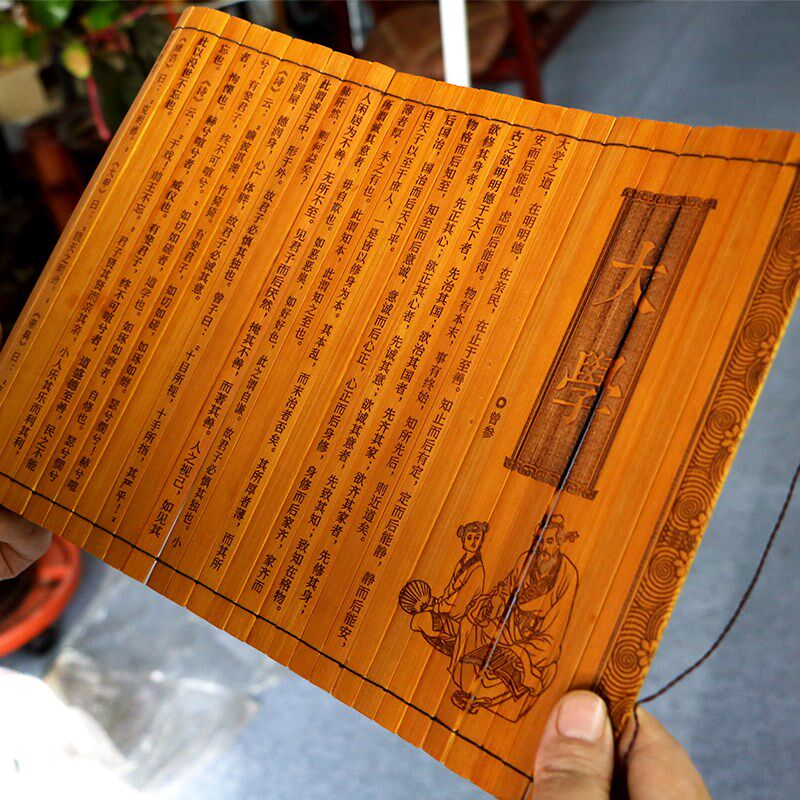 大學
◎曾参
大学之道，在明明德，在亲民，在止于至善。知止而后有定，定而后能静，静而后能安，
安而后能虑，虑而后能得。物有本末，事有终始，知所先后，则近道矣。
古之欲明明德于天下者，先治其国；欲治其国者，先齐其家；欲齐其家者，先修其身；
欲修其身者，先正其心；欲正其心者，先诚其意；欲诚其意者，先致其知；致知在格物。
物格而后知至，知至而后意诚，意诚而后心正，心正而后身修，身修而后家齐，家齐而
后国治，国治而后天下平。
自天子以至于庶人，一是皆以修身为本。其本乱，而末治者否矣。其所厚者薄，而其所
薄者厚，未之有也。此谓知本，此谓知之至也。
所谓诚其意者，毋自欺也。如恶恶臭，如好好色，此之谓自谦。故君子必慎其独也。小
人闲居为不善，无所不至。见君子而后厌然，掩其不善，而著其善。人之视己，如见其
肺肝然，则何益矣？
此谓诚于中，形于外。故君子必慎其独也。曾子曰："十目所视，十手所指，其严乎！"
富润屋，德润身，心广体胖，故君子必诚其意。
《诗》云："瞻彼淇澳，菉竹猗猗。有斐君子，如切如磋，如琢如磨。瑟兮僩兮，赫兮喧
兮！有斐君子，终不可喧兮"。如切如磋者，道学也。如琢如磨者，自修也。瑟兮僩兮
者，恂慄也。赫兮喧兮者，威仪也。有斐君子，终不可喧兮者，道盛德至善，民之不能
忘也。
《诗》云："于戏，前王不忘。"君子贤其贤而亲其亲，小人乐其乐而利其利，
此以没世不忘也。
《康诰》曰："克明德。"《大甲》曰："顾諟天之明命。"《帝典》曰：